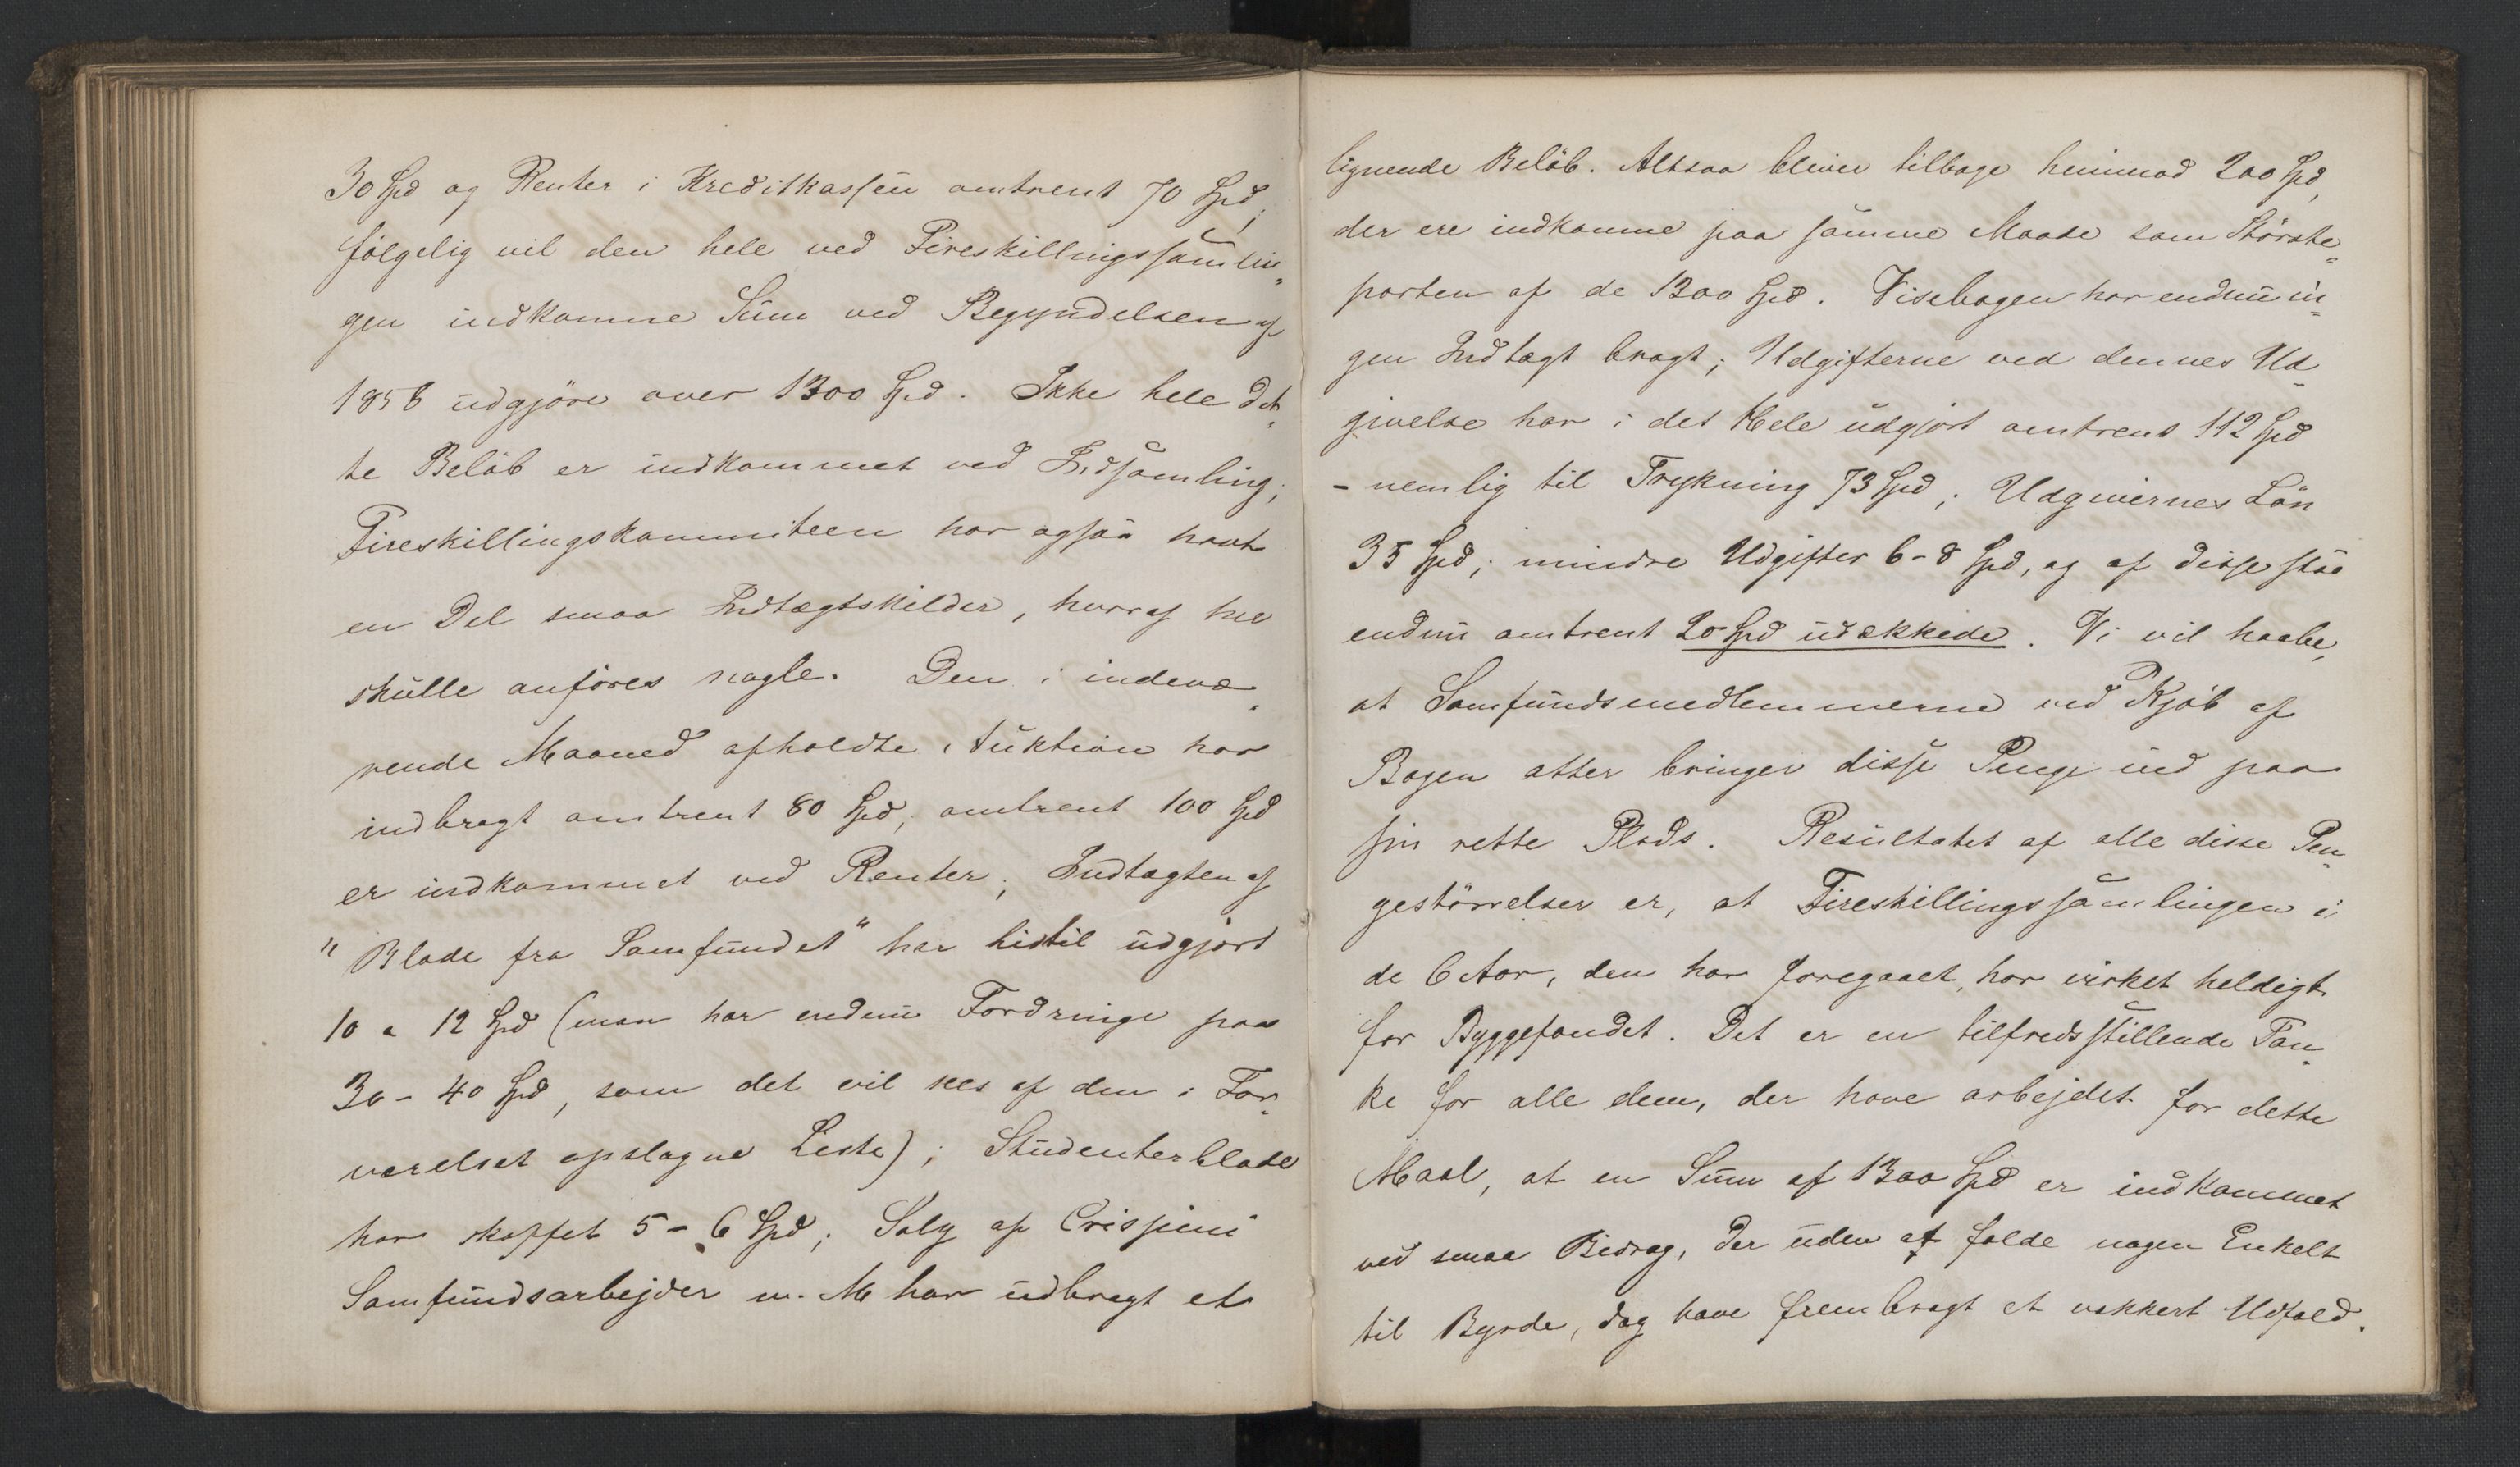 30 Spd og Renter i Kreditkassen omtrent 70 Spd;
følgelig vil den hele ved Fireskillingssamlin-
gen indkomne Sum ved Begyndelsen af
1856 udgjøre over 1300 Spd. Ikke hele det-
te Beløb er indkommet ved Indsamling;
Fireskillingskommiteen har ogsaa havt
en Del smaa Indtægtskilder, hvoraf her
skulle anføres nogle. Den i indevæ-
rende Maaned afholdte Auktion har
indbragt omtrent 80 Spd; omtrent 100 Spd
er indkommet ved Renter; Indtægten af
"Blade fra Samfundet" har hidtil udgjort
10 a 12 Spd (man har endnu Fordringe paa
30-40 Spd, som det vil sees af den i For-
værelset opslagne Liste); Studenterblade
har skaffet 5-6 Spd; Salg af Crispini
Samfundsarbejder m. M har udbragt et
lignende Beløb. Altsaa bliver tilbage henimod 200 Spd,
der ere indkomne paa samme Maade som Største-
parten af de 1300 Spd. Visebogen har endnu in-
gen Indtægt bragt; Udgifterne ved dennes Ud-
givelse har i det Hele udgjort omtrent 112 Spd
- nemlig til Trykning 73 Spd; Udgivernes Løn
35 Spd; mindre Udgifter 6-8 Spd, og af disse staa
endnu omtrent 20 Spd udækkede. Vi vil haabe,
at Samfundsmedlemmerne ved Kjøb af
Bogen atter bringer disse Penge ind paa
sin rette Plads. Resultatet af alle disse Pen-
gestørrelser er, at Fireskillingssamlingen i
de 6 Aar, den har foregaaet, har virket heldigt
for Byggefondet. Det er en tilfredsstillende Tan-
ke for alle dem, der have arbejdet for dette
Maal, at en Sum af 1300 Spd er indkommet
ved smaa Bidrag, der uden at falde nogen Enkelt
til Byrde, dog have frembragt et vakkert Udfald.